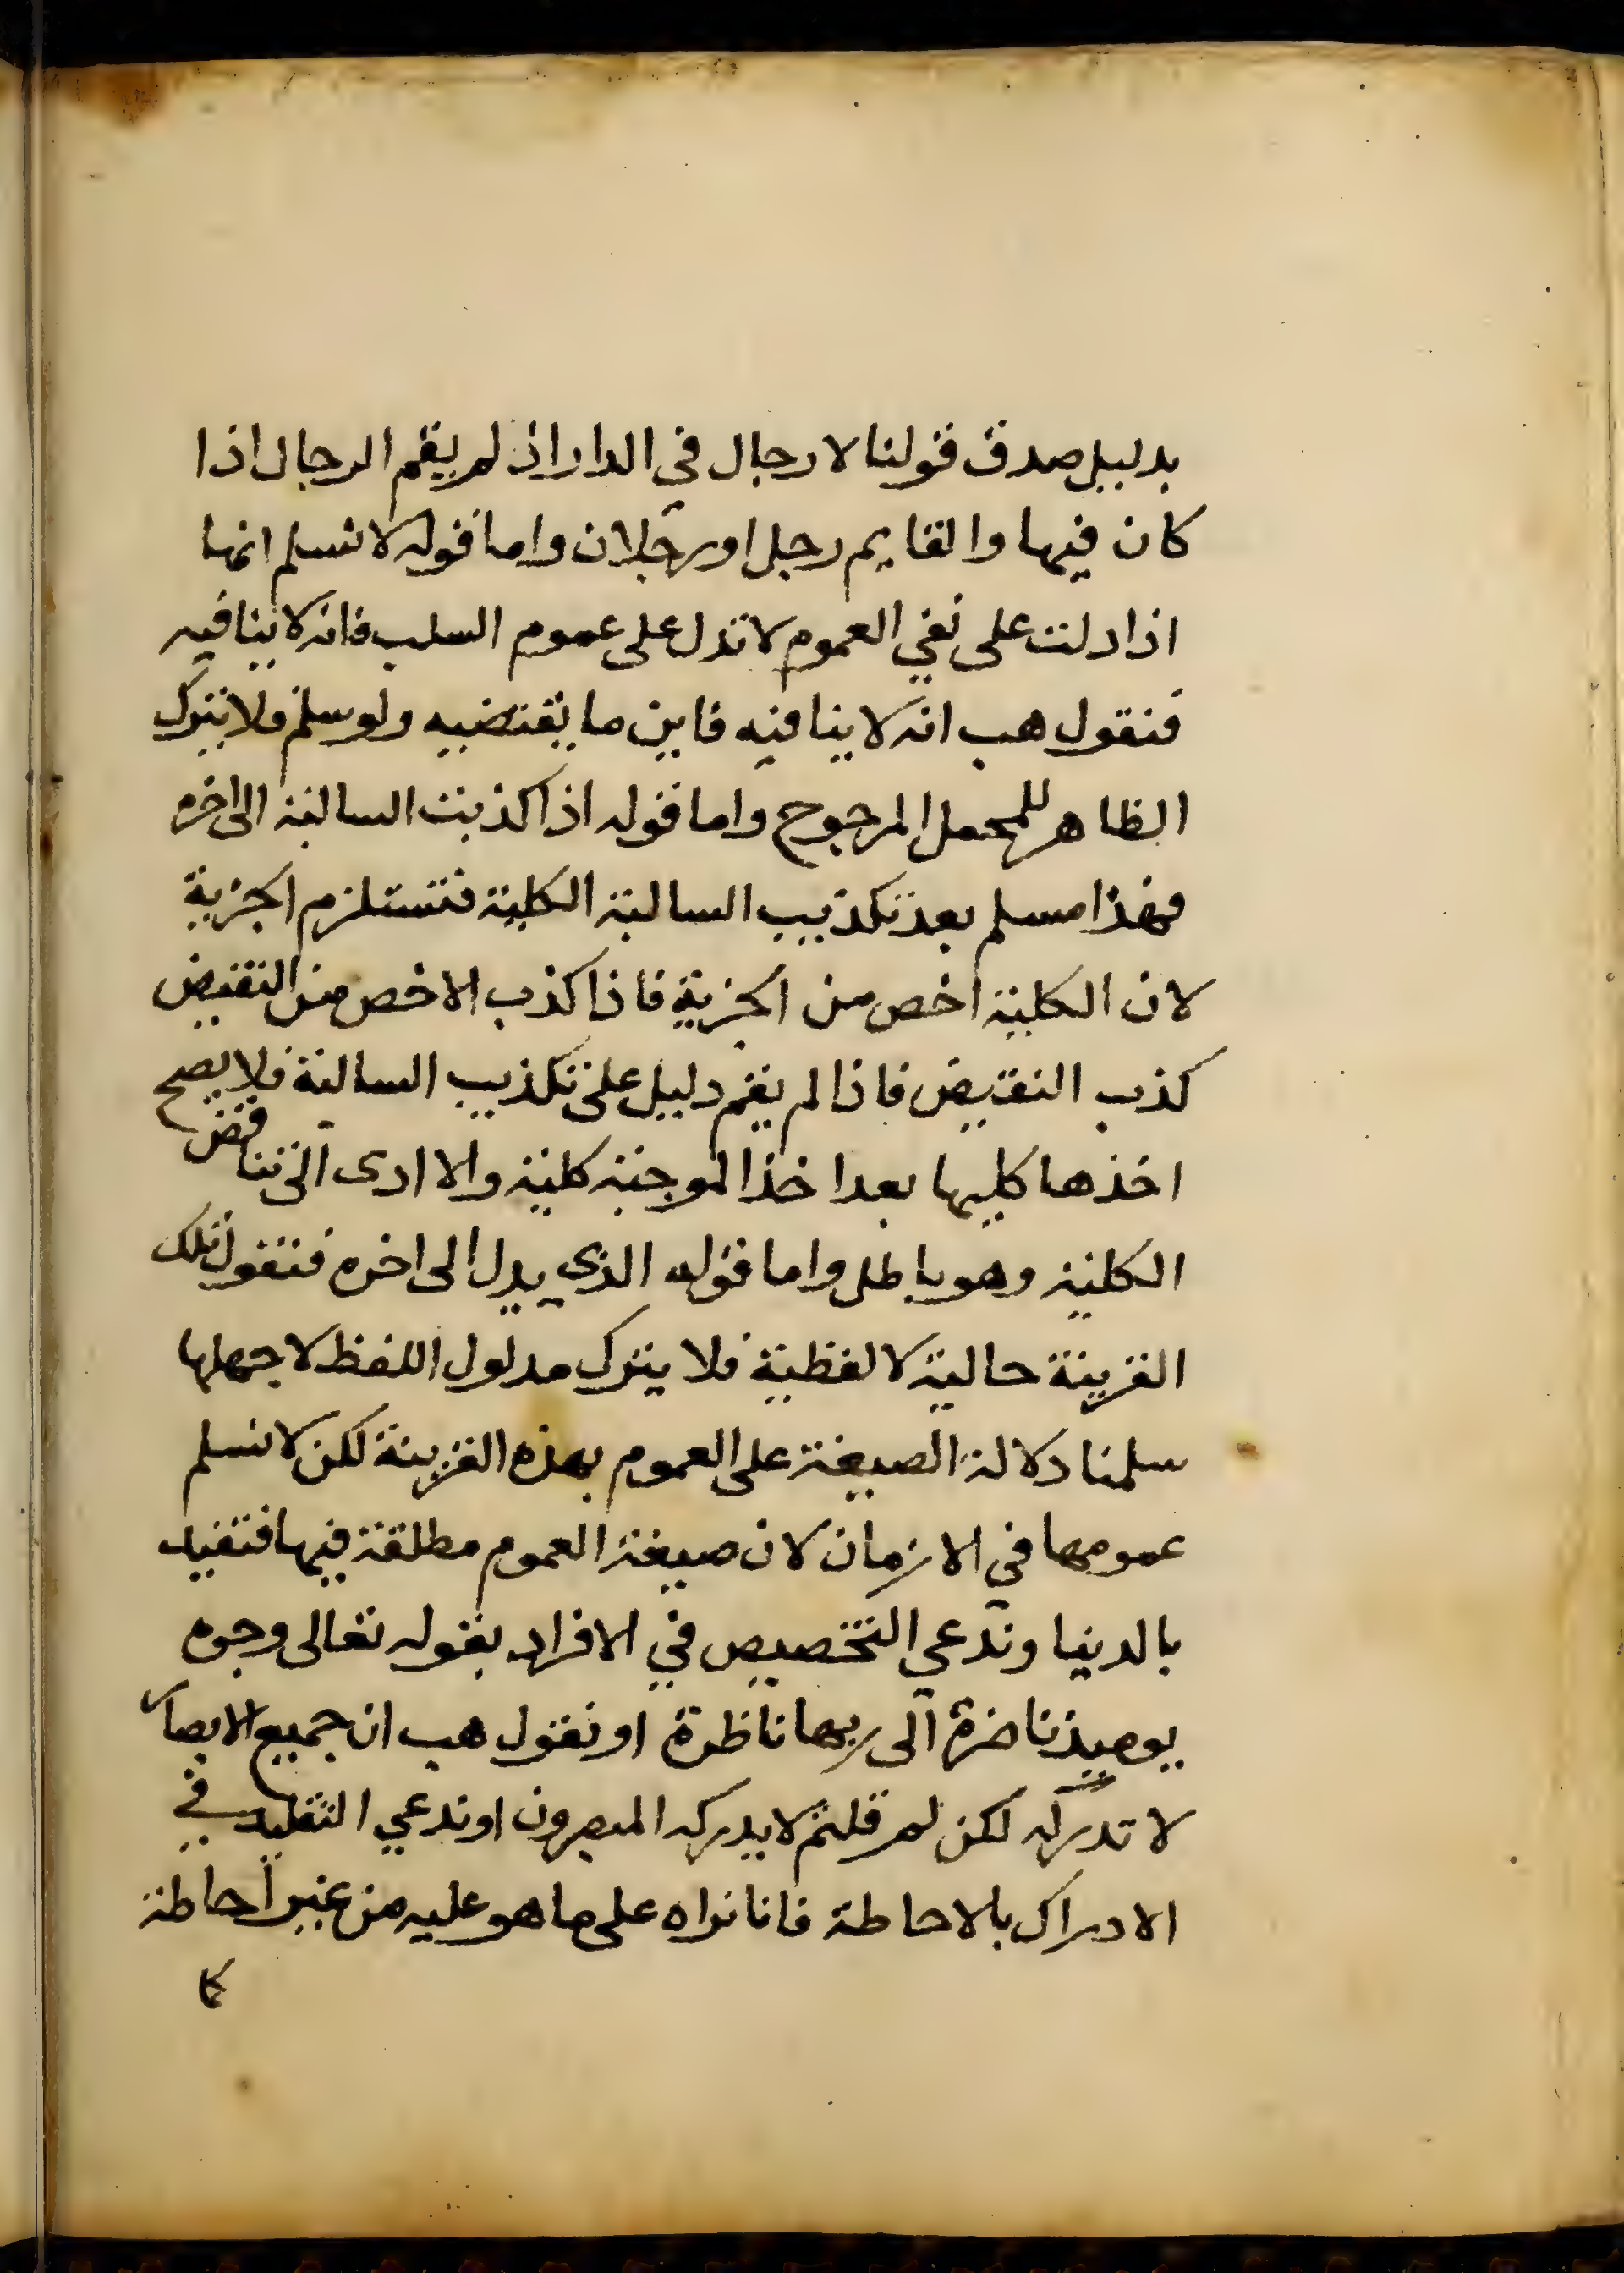 بدليل صدق قولنا لا رجال في الدار اذ لم يقم الرجال اذا
كان فيها والقايم رجل او رجلان واما قوله لا نسلم انها
اذا دلت على نفي العموم لا تدل على عموم السلب فانه لا ينافيه
فنقول هب انه لا ينافيه فاين ما يقتضيه ولو سلم فلا يترك
الظاهر للمحمل المرجوح واما قوله اذا كذبت السالبة الى اخره
فهذا مسلم بعد تكذيب السالبة الكلية فتستلزم الجزية
لان الكلية اخص من الجزية فاذا كذب الاخص من النقيض
كذب النقيض فاذا لم يقم دليل على تكذيب السالبة فلا يصح
اخذها كليها بعد اخذ الموجبة كلية والا ادى الى تناقض
الكلية وهو باطل واما قوله الذي يدل الى اخره فنقول تلك
القرينة حالية لا لفظية فلا يترك مدلول اللفظ لا جهلها
سلمنا دلالة الصيغة على العموم بهذه القرينة لكن لا نسلم
عمومها في الازمان لان صيغة العموم مطلقة فيها فتفيد
بالدنيا وندعي التخصيص في الافراد بقوله تعالى وجوه
يوميذ ناضرة الى ربها ناظرة او نقول هب ان جميع الابصار
لا تدركه لكن لم قلتم لا يدركه المبصرون او ندعي التقليد في
الادراك بالاحاطة فانا نراه على ما هو عليه من غير احاطة
كا